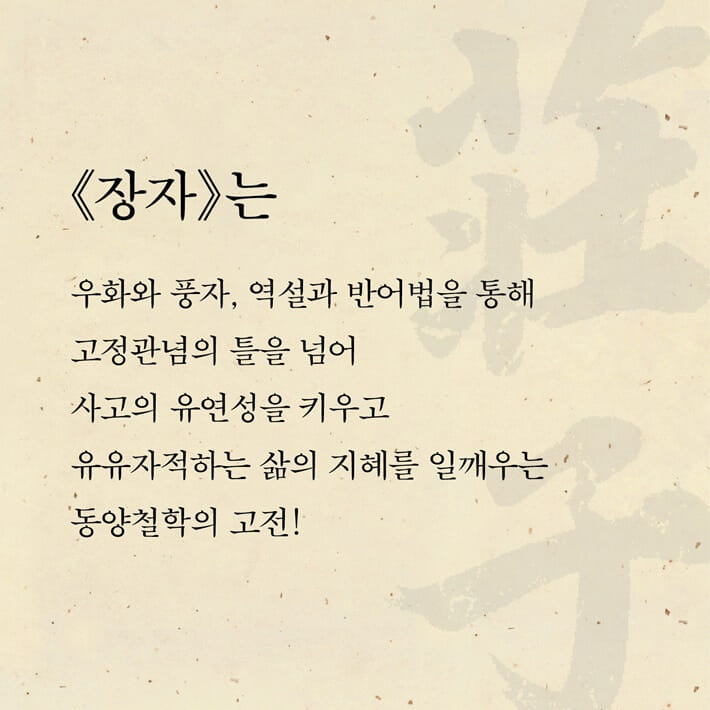 《장자》는
우화와 풍자, 역설과 반어법을 통해
고정관념의 틀을 넘어
사고의 유연성을 키우고
유유자적하는 삶의 지혜를 일깨우는
동양철학의 고전!
莊子